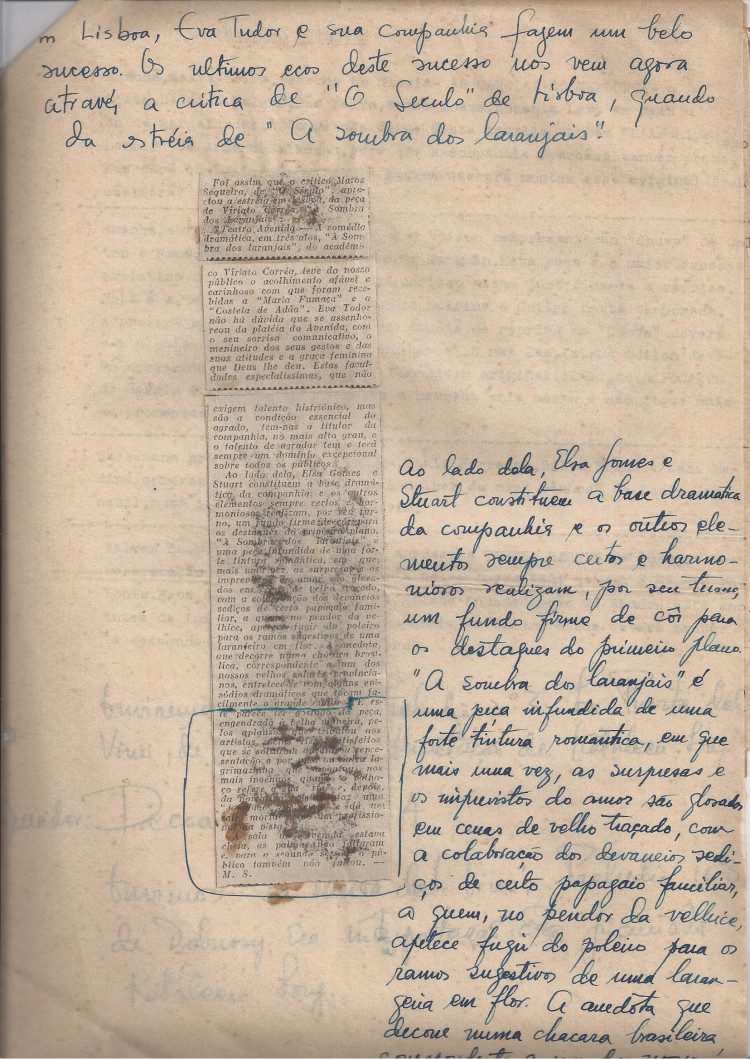 m Lisboa, Eva Tudor e sua companhia fazem um belo
sucesso. Os ultimos ecos deste sucesso nos vem agora
atravéz a critica de "O Seculo" de Lisboa, quando
da estréia de "A sombra dos laranjais".
Foi assim que o critico Matos
Sequeira, de "O Século", apre-
ciou a estréia em Lisboa, da peça
de Viriato Corrêa, "A Sombra
dos Laranjais":
"Teatro Avenida — A comédia
dramática, em três atos, "A Som-
bra dos laranjais", do acadêmi-
co Viriato Corrêa, teve do nosso
público o acolhimento afável e
carinhoso com que foram rece-
bidas a "Maria Fumaça" e a
"Costela de Adão". Eva Todor
não há dúvida que se assenho-
reou da platéia do Avenida, com
o seu sorriso comunicativo, o
menineiro dos seus gestos e das
suas atitudes e a graça feminina
que Deus lhe deu. Estas facul-
dades especialissimas, que não
exigem talento histriónico, mas
são a condição essencial do
agrado, tem-nas a titular da
companhia, no mais alto grau, e
o talento de agradar tem e terá
sempre um domínio excepcional
sobre todos os públicos.
Ao lado dela, Elsa Gomes e
Stuart constituem a base dramá-
tica da companhia; e os outros
elementos sempre certos e har-
moniosos realizam, por seu tur-
no, um fundo firme de côr para
os destaques do primeiro plano.
"A Sombra dos laranjais" é
uma peça infundida de uma for-
te tintura romântica, em que,
mais uma vez, as surprêsas e os
imprevistos do amor são glosa-
dos em cenas de velho traçado,
com a colaboração dos devaneios
sediços de certo papagaio fami-
liar, a quem, no pendor da ve-
lhice, apetece fugir do poleiro
para os ramos sugestivos de uma
laranjeira em flor. A anedota,
que decorre numa chácara brasi-
lica, correspondente a um dos
nossos velhos solares provincia-
nos, entretece-se com alguns epi-
sódios dramáticos que tocam fa-
cilmente o grande público. es-
te parece ter gostado da peça,
engendrada à velha maneira, pe-
los aplausos que tributou aos
artistas,
que se
sentação e por
lagrimazinha que
mais
ço
da
salto mortal
na pista.
A sala do Avenida estava
cheia, as palmas não faltaram
e, para a segunda sessão, o pú-
blico também não faltou. —
M. S.
Ao lado dela, Elsa Gomes e
Stuart constituem a base dramatica
da companhia e os outros ele-
mentos sempre certos e harmo-
niosos realizam, por seu turno,
um fundo firme de côr para
os destaques do primeiro plano.
"A sombra dos laranjais" é
uma peça infundida de uma
forte tintura romantica, em que
mais uma vez, as surpresas e
os imprevistos do amor são glosados
em cenas de velho traçado, com
a colaboração dos devaneios sedi-
ços de certo papagaio familiar,
a quem, no pendor da velhice,
apetece fugir do poleiro para os
ramos sugestivos de uma laran-
geira em flor. A anedota que
decorre numa chacara brasileira,